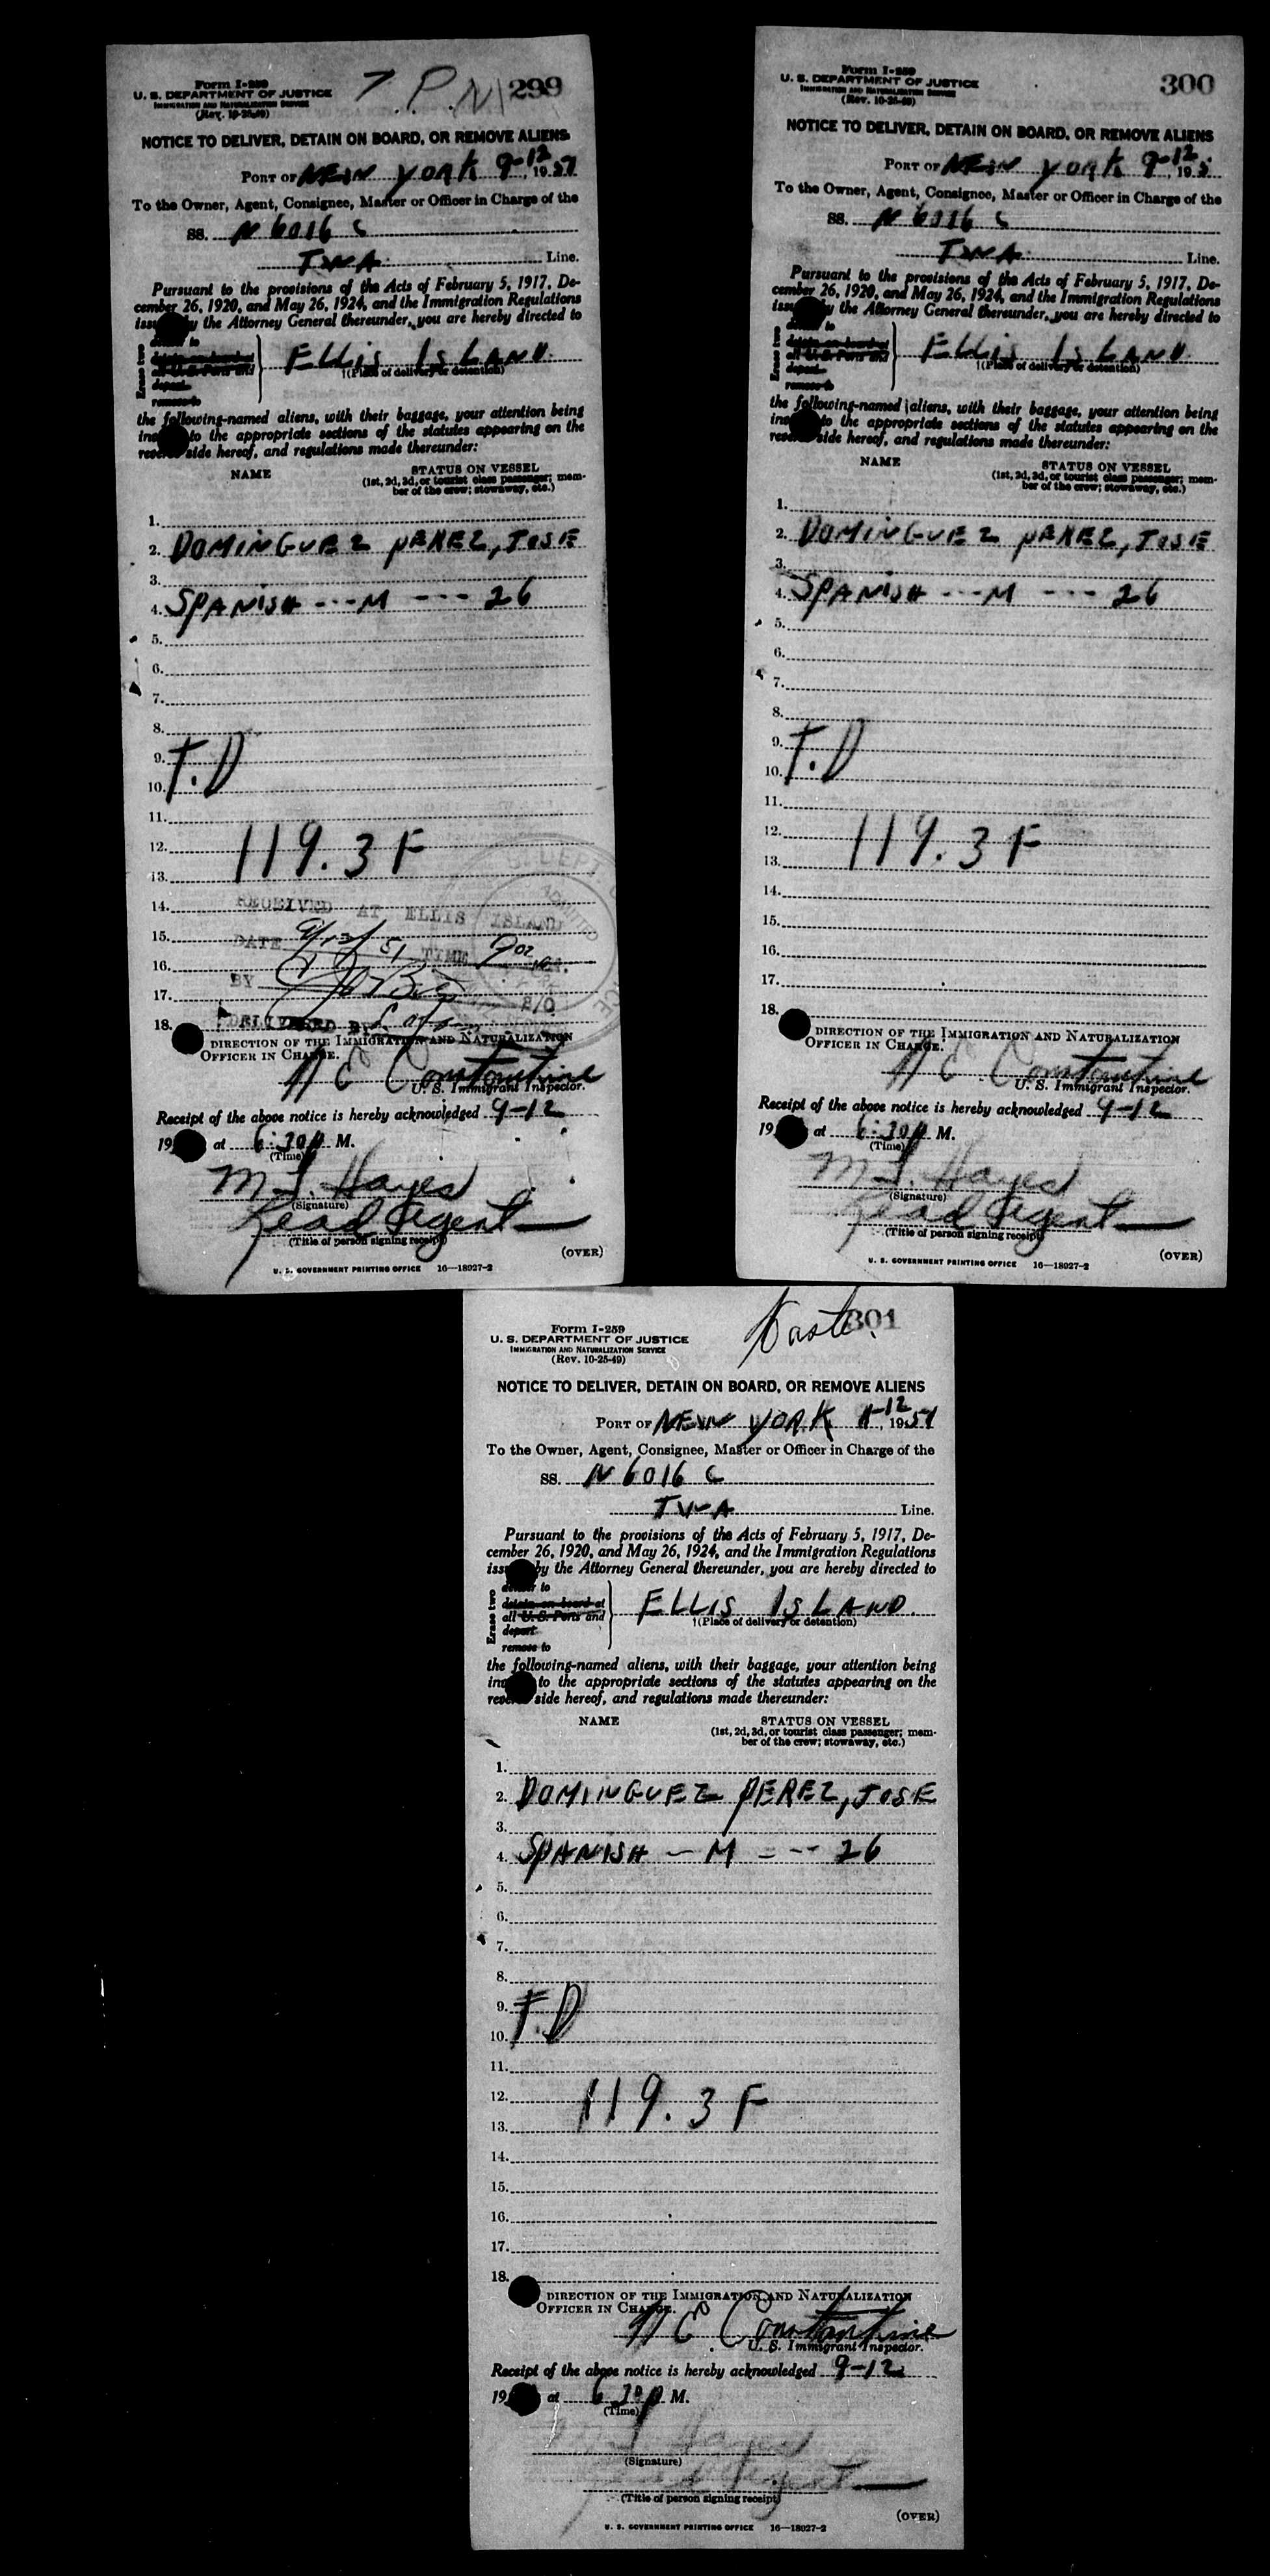 Form I-259
U. S. DEPARTMENT OF JUSTICE
IMMIGRATION AND NATURALIZATION SERVICE
(Rev. 10-25-49)
T.P.N 299
NOTICE TO DELIVER, DETAIN ON BOARD, OR REMOVE ALIENS
PORT OF NEW YORK 9-12, 1951
To the Owner, Agent, Consignee, Master or Officer in Charge of the
SS. N 6016 C
TWA Line.
Pursuant to the provisions of the Acts of February 5, 1917, De-
cember 26, 1920, and May 26, 1924, and the Immigration Regulations
iss y the Attorney General thereunder, you are hereby directed to
Erase two
to
detain on board at
all U. S. Ports and
depart
remove to
ELLIS ISLAND
†(Place of delivery or detention)
the following-named aliens, with their baggage, your attention being
to the appropriate sections of the statutes appearing on the
reverse side hereof, and regulations made thereunder:
NAME STATUS ON VESSEL
(1st, 2d, 3d, or tourist class passenger; mem-
ber of the crew; stowaway, etc.)
1.
2. DOMINGUEZ PEREZ, JOSE
3.
4. SPANISH --- M --- 26
5.
6.
7.
8.
9. T.D
10.
11.
12. 119.3 F
13.
14. RECEIVED AT ELLIS ISLAND
15. DATE 9/12/51 TIME
16.
BY
17.
18. DELIVERED BY
DIRECTION OF THE IMMIGRATION AND NATURALIZATION
OFFICER IN CHARGE.
N E Constantine
U. S. Immigrant Inspector.
Receipt of the above notice is hereby acknowledged 9-12
19 at 6:30 p M.
(Time)
M J. Hayes
(Signature)
Lead Agent
(Title of person signing receipt)
(OVER)
U. S. GOVERNMENT PRINTING OFFICE 16—18027-2
Form I-259
U. S. DEPARTMENT OF JUSTICE
IMMIGRATION AND NATURALIZATION SERVICE
(Rev. 10-25-49)
300
NOTICE TO DELIVER, DETAIN ON BOARD, OR REMOVE ALIENS
PORT OF NEW YORK 9-12, 195
To the Owner, Agent, Consignee, Master or Officer in Charge of the
SS. N 6016 C
TWA Line.
Pursuant to the provisions of the Acts of February 5, 1917, De-
cember 26, 1920, and May 26, 1924, and the Immigration Regulations
iss y the Attorney General thereunder, you are hereby directed to
Erase two
to
detain on board at
all U. S. Ports and
depart
remove to
ELLIS ISLAND
†(Place of delivery or detention)
the following-named aliens, with their baggage, your attention being
to the appropriate sections of the statutes appearing on the
reverse side hereof, and regulations made thereunder:
NAME STATUS ON VESSEL
(1st, 2d, 3d, or tourist class passenger; mem-
ber of the crew; stowaway, etc.)
1.
2. DOMINGUEZ PEREZ, JOSE
3.
4. SPANISH --- M --- 26
5.
6.
7.
8.
9. T.D
10.
11.
12. 119.3 F
13.
14.
15.
16.
17.
18.
DIRECTION OF THE IMMIGRATION AND NATURALIZATION
OFFICER IN CHARGE.
N E Constantine
U. S. Immigrant Inspector.
Receipt of the above notice is hereby acknowledged 9-12
19 at 6:30 p M.
(Time)
M J. Hayes
(Signature)
Lead Agent
(Title of person signing receipt)
(OVER)
U. S. GOVERNMENT PRINTING OFFICE 16—18027-2
Form I-259
U. S. DEPARTMENT OF JUSTICE
IMMIGRATION AND NATURALIZATION SERVICE
(Rev. 10-25-49)
301
NOTICE TO DELIVER, DETAIN ON BOARD, OR REMOVE ALIENS
PORT OF NEW YORK 9-12, 1951
To the Owner, Agent, Consignee, Master or Officer in Charge of the
SS. N 6016 C
TWA Line.
Pursuant to the provisions of the Acts of February 5, 1917, De-
cember 26, 1920, and May 26, 1924, and the Immigration Regulations
iss by the Attorney General thereunder, you are hereby directed to
Erase two
to
detain on board at
all U. S. Ports and
depart
remove to
ELLIS ISLAND
†(Place of delivery or detention)
the following-named aliens, with their baggage, your attention being
to the appropriate sections of the statutes appearing on the
reverse side hereof, and regulations made thereunder:
NAME STATUS ON VESSEL
(1st, 2d, 3d, or tourist class passenger; mem-
ber of the crew; stowaway, etc.)
1.
2. DOMINGUEZ PEREZ, JOSE
3.
4. SPANISH -- M --- 26
5.
6.
7.
8.
9. T.D
10.
11.
12. 119.3 F
13.
14.
15.
16.
17.
18.
DIRECTION OF THE IMMIGRATION AND NATURALIZATION
OFFICER IN CHARGE.
N E Constantine
U. S. Immigrant Inspector.
Receipt of the above notice is hereby acknowledged 9-12
19 at 6 30 p M.
(Time)
M J Hayes
(Signature)
Lead Agent
(Title of person signing receipt)
(OVER)
U. S. GOVERNMENT PRINTING OFFICE 16—18027-2